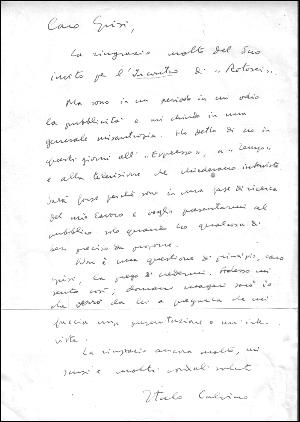 Caro Grisi,
La ringrazio molto del Suo
invito per l'Incontro di "Rotosei".
Ma sono in un periodo in cui odio
la pubblicità e mi chiudo in una
generale misantropia. Ho detto di no in
questi giorni all'"Espresso", a "Tempo"
e alla televisione che chiedevano interviste
Sarà forse perché sono in una fase di ricerca
del mio lavoro e voglio presentarmi al
pubblico solo quando ho qualcosa di
ben preciso da proporre.
Non è una questione di principio, caro
Grisi, La prego di credermi. Adesso mi
sento così; domani magari sarò io
che verrò da Lei a pregarla che mi
faccia una presentazione o un'inter-
vista.
La ringrazio ancora molto, mi
scusi e molti cordiali saluti
Italo Calvino